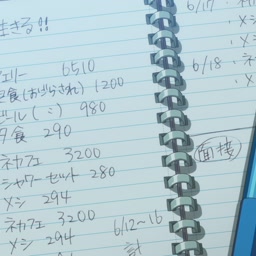 生きる!!
ェリー 6510
食(おごらされ) 1200
ビール(:) 980
夕食 290
ネカフェ 3200
シャワーセット 280
メシ 294
ネカフェ 3200
メシ 294
6/12~16
計
6/17
・メシ
・メ
6/18 ・ネ
・メ
面接